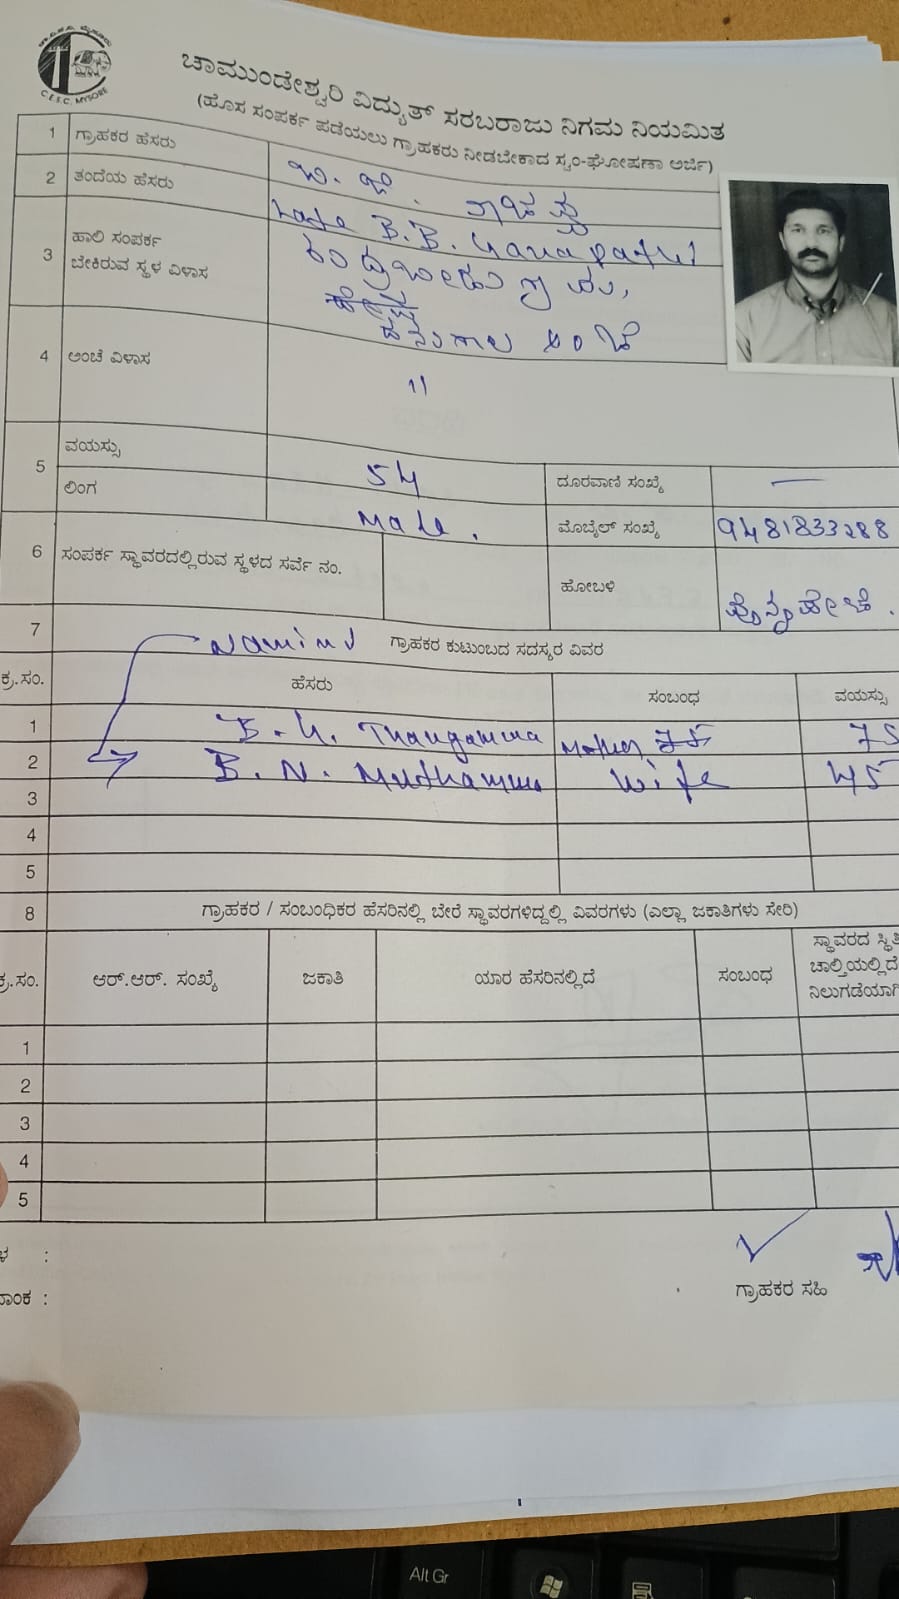 C.E.S.C. MYSORE
ಚಾಮುಂಡೇಶ್ವರಿ ವಿದ್ಯುತ್ ಸರಬರಾಜು ನಿಗಮ ನಿಯಮಿತ
(ಹೊಸ ಸಂಪರ್ಕ ಪಡೆಯಲು ಗ್ರಾಹಕರು ನೀಡಬೇಕಾದ ಸ್ವಂ-ಘೋಷಣಾ ಅರ್ಜಿ)
1 ಗ್ರಾಹಕರ ಹೆಸರು ಬಿ. ಜಿ.
2 ತಂದೆಯ ಹೆಸರು Late B.B. Ganapathi
3 ಹಾಲಿ ಸಂಪರ್ಕ
ಬೇಕಿರುವ ಸ್ಥಳ ವಿಳಾಸ
ಅಂಚೆ
4 ಅಂಚೆ ವಿಳಾಸ 11
5 ವಯಸ್ಸು 54 ದೂರವಾಣಿ ಸಂಖ್ಯೆ —
ಲಿಂಗ Male. ಮೊಬೈಲ್ ಸಂಖ್ಯೆ 9481833288
6 ಸಂಪರ್ಕ ಸ್ಥಾವರದಲ್ಲಿರುವ ಸ್ಥಳದ ಸರ್ವೆ ನಂ. ಹೋಬಳಿ
7 ಗ್ರಾಹಕರ ಕುಟುಂಬದ ಸದಸ್ಯರ ವಿವರ
ಕ್ರ.ಸಂ. ಹೆಸರು ಸಂಬಂಧ ವಯಸ್ಸು
1 B.G. Thangamma Mother 75 75
2 B.N. Muthamma Wife 45
3
4
5
8 ಗ್ರಾಹಕರ / ಸಂಬಂಧಿಕರ ಹೆಸರಿನಲ್ಲಿ ಬೇರೆ ಸ್ಥಾವರಗಳಿದ್ದಲ್ಲಿ ವಿವರಗಳು (ಎಲ್ಲಾ ಜಕಾತಿಗಳು ಸೇರಿ)
ಕ್ರ.ಸಂ. ಆರ್.ಆರ್. ಸಂಖ್ಯೆ ಜಕಾತಿ ಯಾರ ಹೆಸರಿನಲ್ಲಿದೆ ಸಂಬಂಧ ಸ್ಥಾವರದ ಸ್ಥಿತಿ
ಚಾಲ್ತಿಯಲ್ಲಿದೆ
ನಿಲುಗಡೆಯಾಗಿ
1
2
3
4
5
ಗ್ರಾಹಕರ ಸಹಿ
Alt Gr